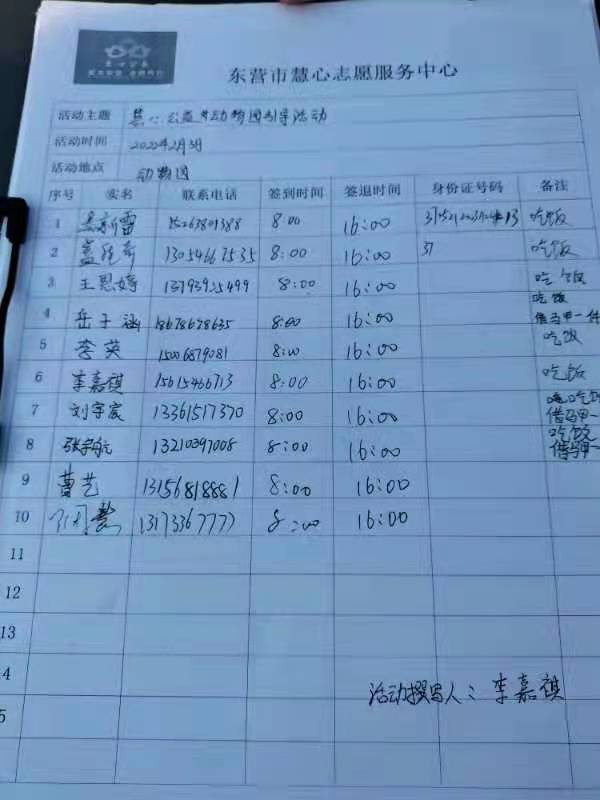 东营市慧心志愿服务中心
活动主题 公益 动物园引导活动
活动时间 2022年2月3日
活动地点 动物园
序号 实名 联系电话 签到时间 签退时间 身份证号码 备注
1 8:00 16:00 吃饭
2 13054667535 8:00 16:00 37 吃饭
3 王思婷 13793925499 8:00 16:00 吃饭
4 岳子涵 18678698635 8:00 16:00 吃饭
借马甲一件
5 李英 15006879081 8:00 16:00 吃饭
6 李嘉祺 15615466713 8:00 16:00 吃饭
7 刘宇宸 13361517370 8:00 16:00 吃饭
借马甲一
8 张宇航 13210397008 8:00 16:00 吃饭
借马甲一
9 曹艺 13156818881 8:00 16:00
10 13173367777 8:00 16:00
11
12
13
4
5
活动撰写人：李嘉祺